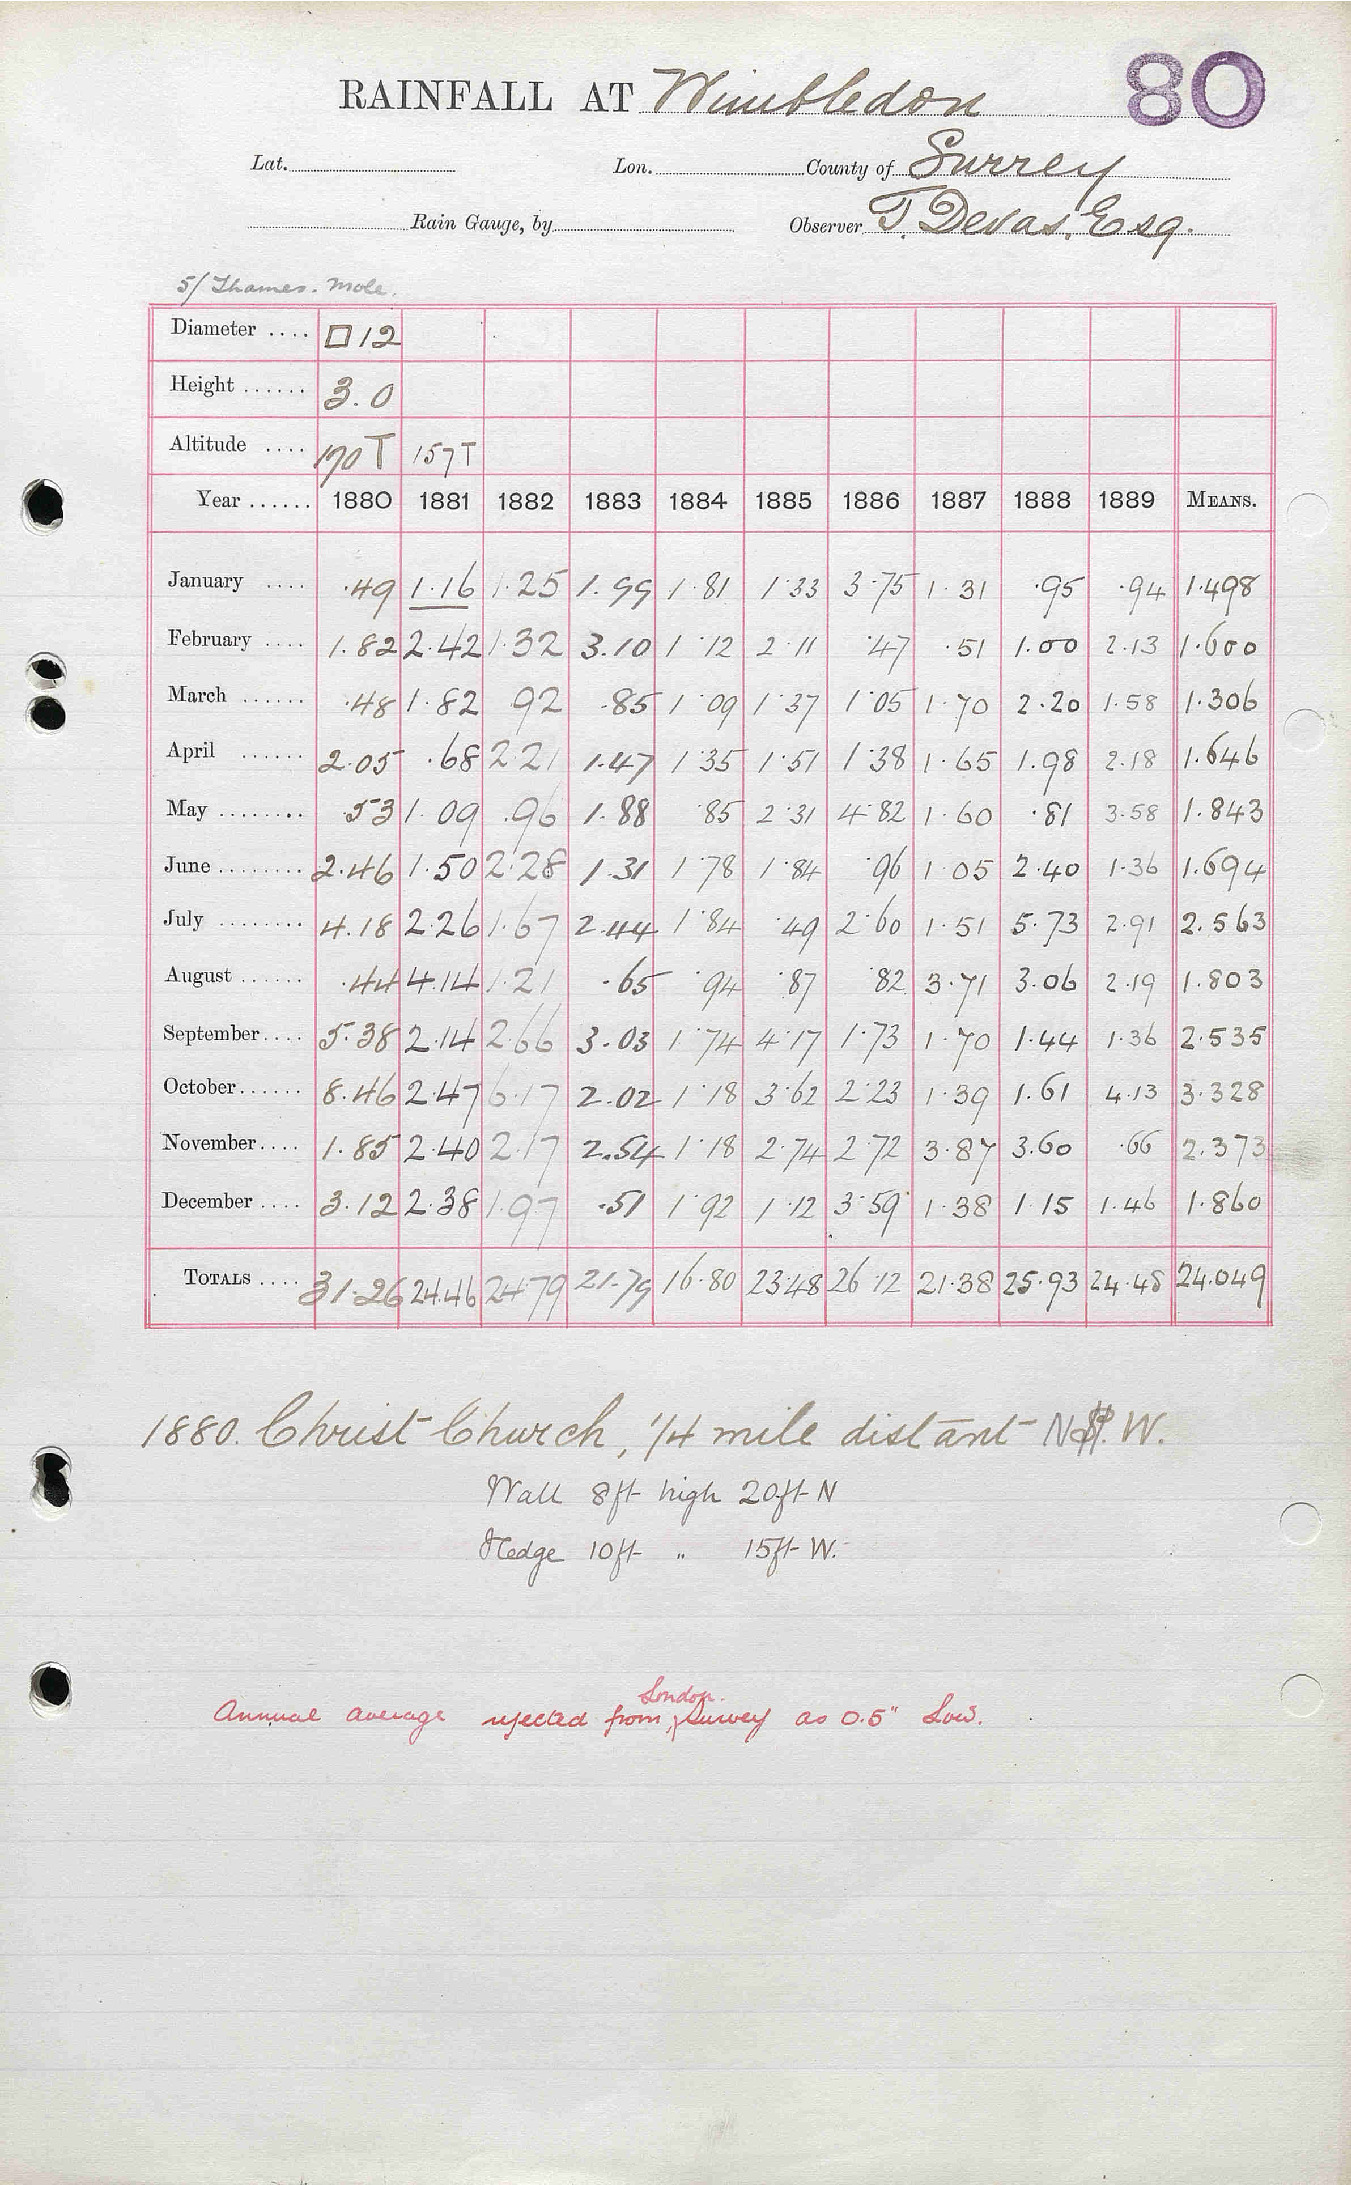 80
RAINFALL AT Wimbledon
Lat. Lon. County of Surrey
Rain Gauge, by Observer T. Devas, Esq.
5/ Thames. Mole.
Diameter .... □12
Height ...... 3.0
Altitude .... 170T 157T
Year ...... 1880 1881 1882 1883 1884 1885 1886 1887 1888 1889 MEANS.
January .... .49 1.16 1.25 1.99 1.81 1.33 3.75 1.31 .95 .94 1.498
February .... 1.82 2.42 1.32 3.10 1.12 2.11 .47 .51 1.00 2.13 1.600
March ...... .48 1.82 92 .85 1.09 1.37 1.05 1.70 2.20 1.58 1.306
April ...... 2.05 .68 2.21 1.47 1.35 1.51 1.38 1.65 1.98 2.18 1.646
May ........ .53 1.09 .96 1.88 .85 2.31 4.82 1.60 .81 3.58 1.843
June ........ 2.46 1.50 2.28 1.31 1.78 1.84 .96 1.05 2.40 1.36 1.694
July ........ 4.18 2.26 1.67 2.44 1.84 .49 2.60 1.51 5.73 2.91 2.563
August ...... .44 4.14 1.21 .65 .94 .87 .82 3.71 3.06 2.19 1.803
September .... 5.38 2.14 2.66 3.03 1.74 4.17 1.73 1.70 1.44 1.36 2.535
October ...... 8.46 2.47 6.17 2.02 1.18 3.62 2.23 1.39 1.61 4.13 3.328
November .... 1.85 2.40 2.17 2.54 1.18 2.74 2.72 3.87 3.60 .66 2.373
December .... 3.12 2.38 1.97 .51 1.92 1.12 3.59 1.38 1.15 1.46 1.860
TOTALS .... 31.26 24.46 24.79 21.79 16.80 23.48 26.12 21.38 25.93 24.48 24.049
1880. Christ Church, 1/4 mile distant N. W.
Wall 8ft high 20ft N
Hedge 10ft " 15ft W.
London.
Annual average rejected from Survey as 0.5" Low.